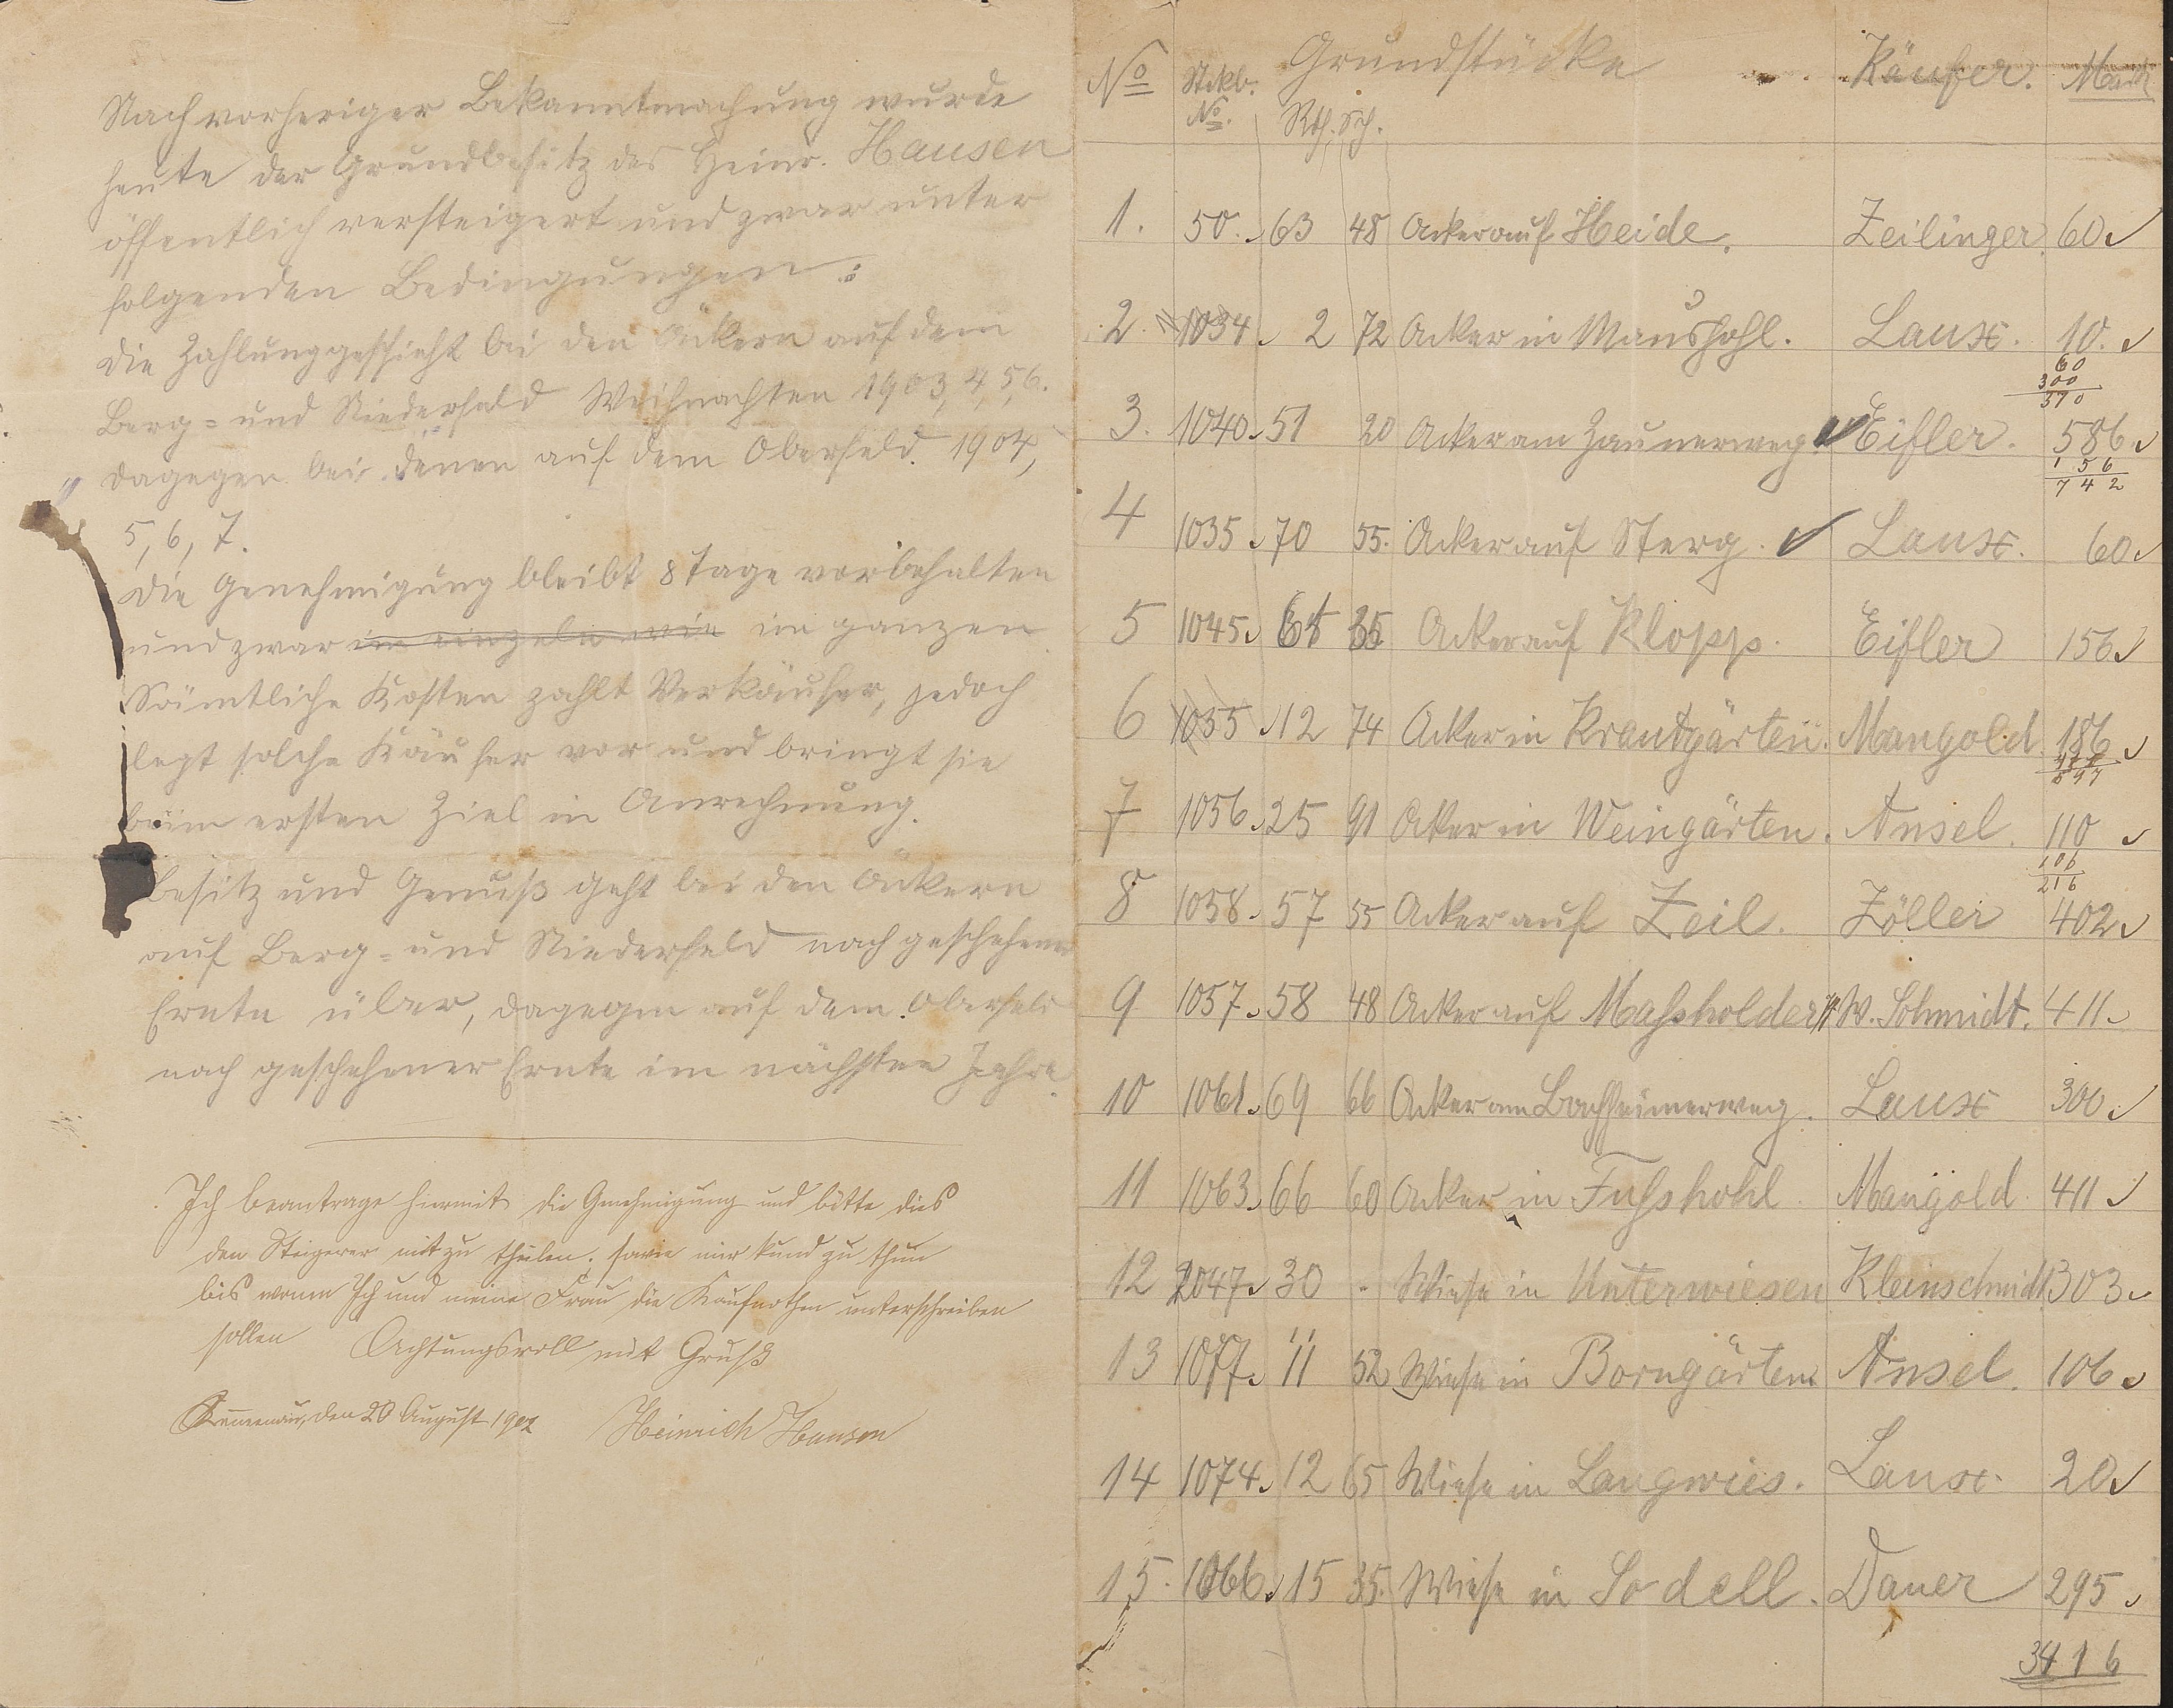 Nach vorheriger Bekanntmachung wurde
heute der Grundbesitz des Heinr. Hausen
öffentlich versteigert und zwar unter
folgenden Bedingungen:
Die Zahlung geschieht bei den Äckern auf dem
Berg- und Niederfeld Weihnachten 1903, 4, 5, 6.
dagegen bei denen auf dem Oberfeld 1904,
5, 6, 7.
Die Genehmigung bleibt 8 Tage vorbehalten
und zwar im einzeln wie im ganzen
Sämtliche Kosten zahlt Verkäufer, jedoch
legt solche Käufer vor und bringt sie
beim ersten Ziel in Anrechnung.
Besitz und Genuß geht bei den Äckern
auf Berg- und Niederfeld nach geschehener
Ernte über, dagegen auf dem Oberfeld
nach geschehener Ernte im nächsten Jahre.
Ich beantrage hiermit die Genehmigung und bitte dies
den Steigerer mit zu theilen; sowie mir kund zu thun
bis wann Ich und meine Frau die Kaufnothen unterschreiben
sollen Achtungsvoll mit Gruß
den 20 August 1902 Heinrich Hausen
No Stckb. No. Grundstücke Rth. Sch. Käufer. Mark
1. 50. 63 48 Acker auf Heide. Zeilinger 60
2. 1034 2 72 Acker in Maushohl. Laux. 10.
60
300
370
3. 1040 51 20 Acker am Zaunerweg. Eifler. 586
156
742
4 1035 70 55. Acker auf Sterg. Laux. 60
5 1045 61 35 Acker auf Klopp. Eifler 156
6 1055 12 74 Acker in Krautgärten. Mangold 186
411
597
7 1056 25 91 Acker in Weingärten. Ansel. 110
106
216
8 1058 57 55 Acker auf Zeil. Zöller 402
9 1057 58 48 Acker auf Maßholder W. Schmidt. 411
10 1061 69 66 Acker am Bachheimerweg. Laux 300
11 1063 66 60 Acker in Fuhshohl Mangold 411
12 2047 30 - Wiese in Unterwiesen Kleinschmidt 303
13 1077 11 52 Wiese in Borngärten Ansel. 106
14 1074 12 65 Wiese in Langwies. Laux. 20
15. 1066 15 35. Wiese in Sodell. Dauer 295
3416